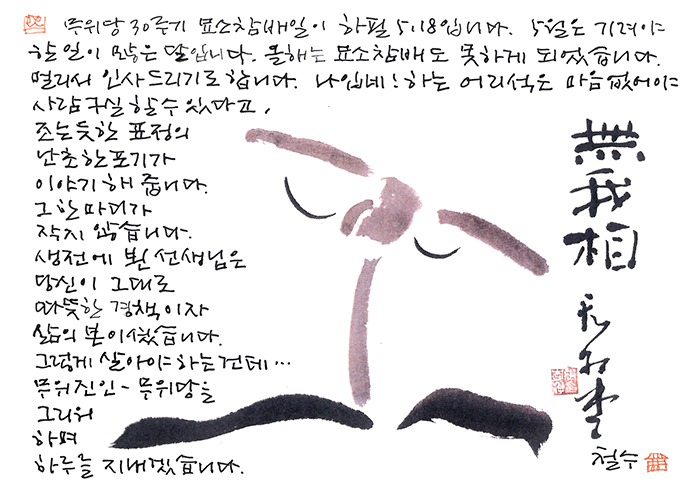 무위당 30주기 묘소참배일이 하필 5.18입니다. 5월은 기려야
할 일이 많은 달입니다. 올해는 묘소참배도 못하게 되었습니다.
멀리서 인사드리기로 합니다. 나입네! 하는 어리석은 마음 없어야
사람구실 할 수 있다고,
조는듯한 표정의
난초 한 포기가
이야기 해 줍니다.
그 한마디가
작지 않습니다.
생전에 뵌 선생님은
당신이 그대로
따뜻한 경책이자
삶의 본이셨습니다.
그렇게 살아야 하는건데…
무위진인- 무위당을
그리워
하며
하루를 지내겠습니다.
無我相
철수